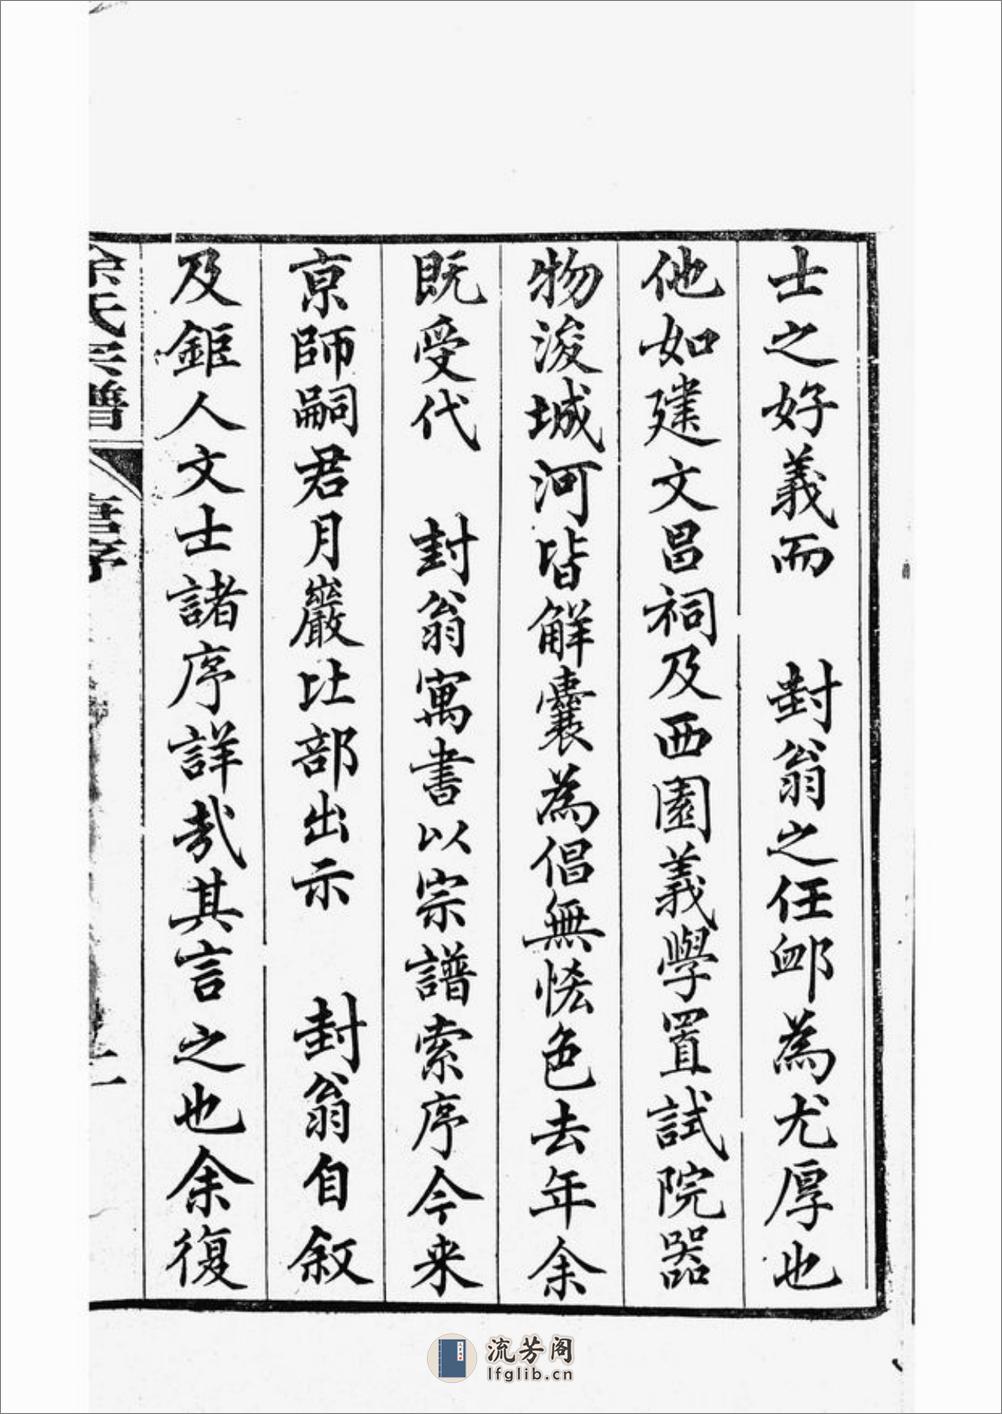 士之好義而　封翁之任邺為尤厚也
他如建文昌祠及西園義學置試院器
物浚城河皆解囊為倡無恡色去年余
既受代　封翁寓書以宗譜索序今来
京師嗣君月巖比部出示　封翁自敘
及鉅人文士諸序詳哉其言之也余復
徐氏宗譜
序
二
流芳阁
lfglib.cn